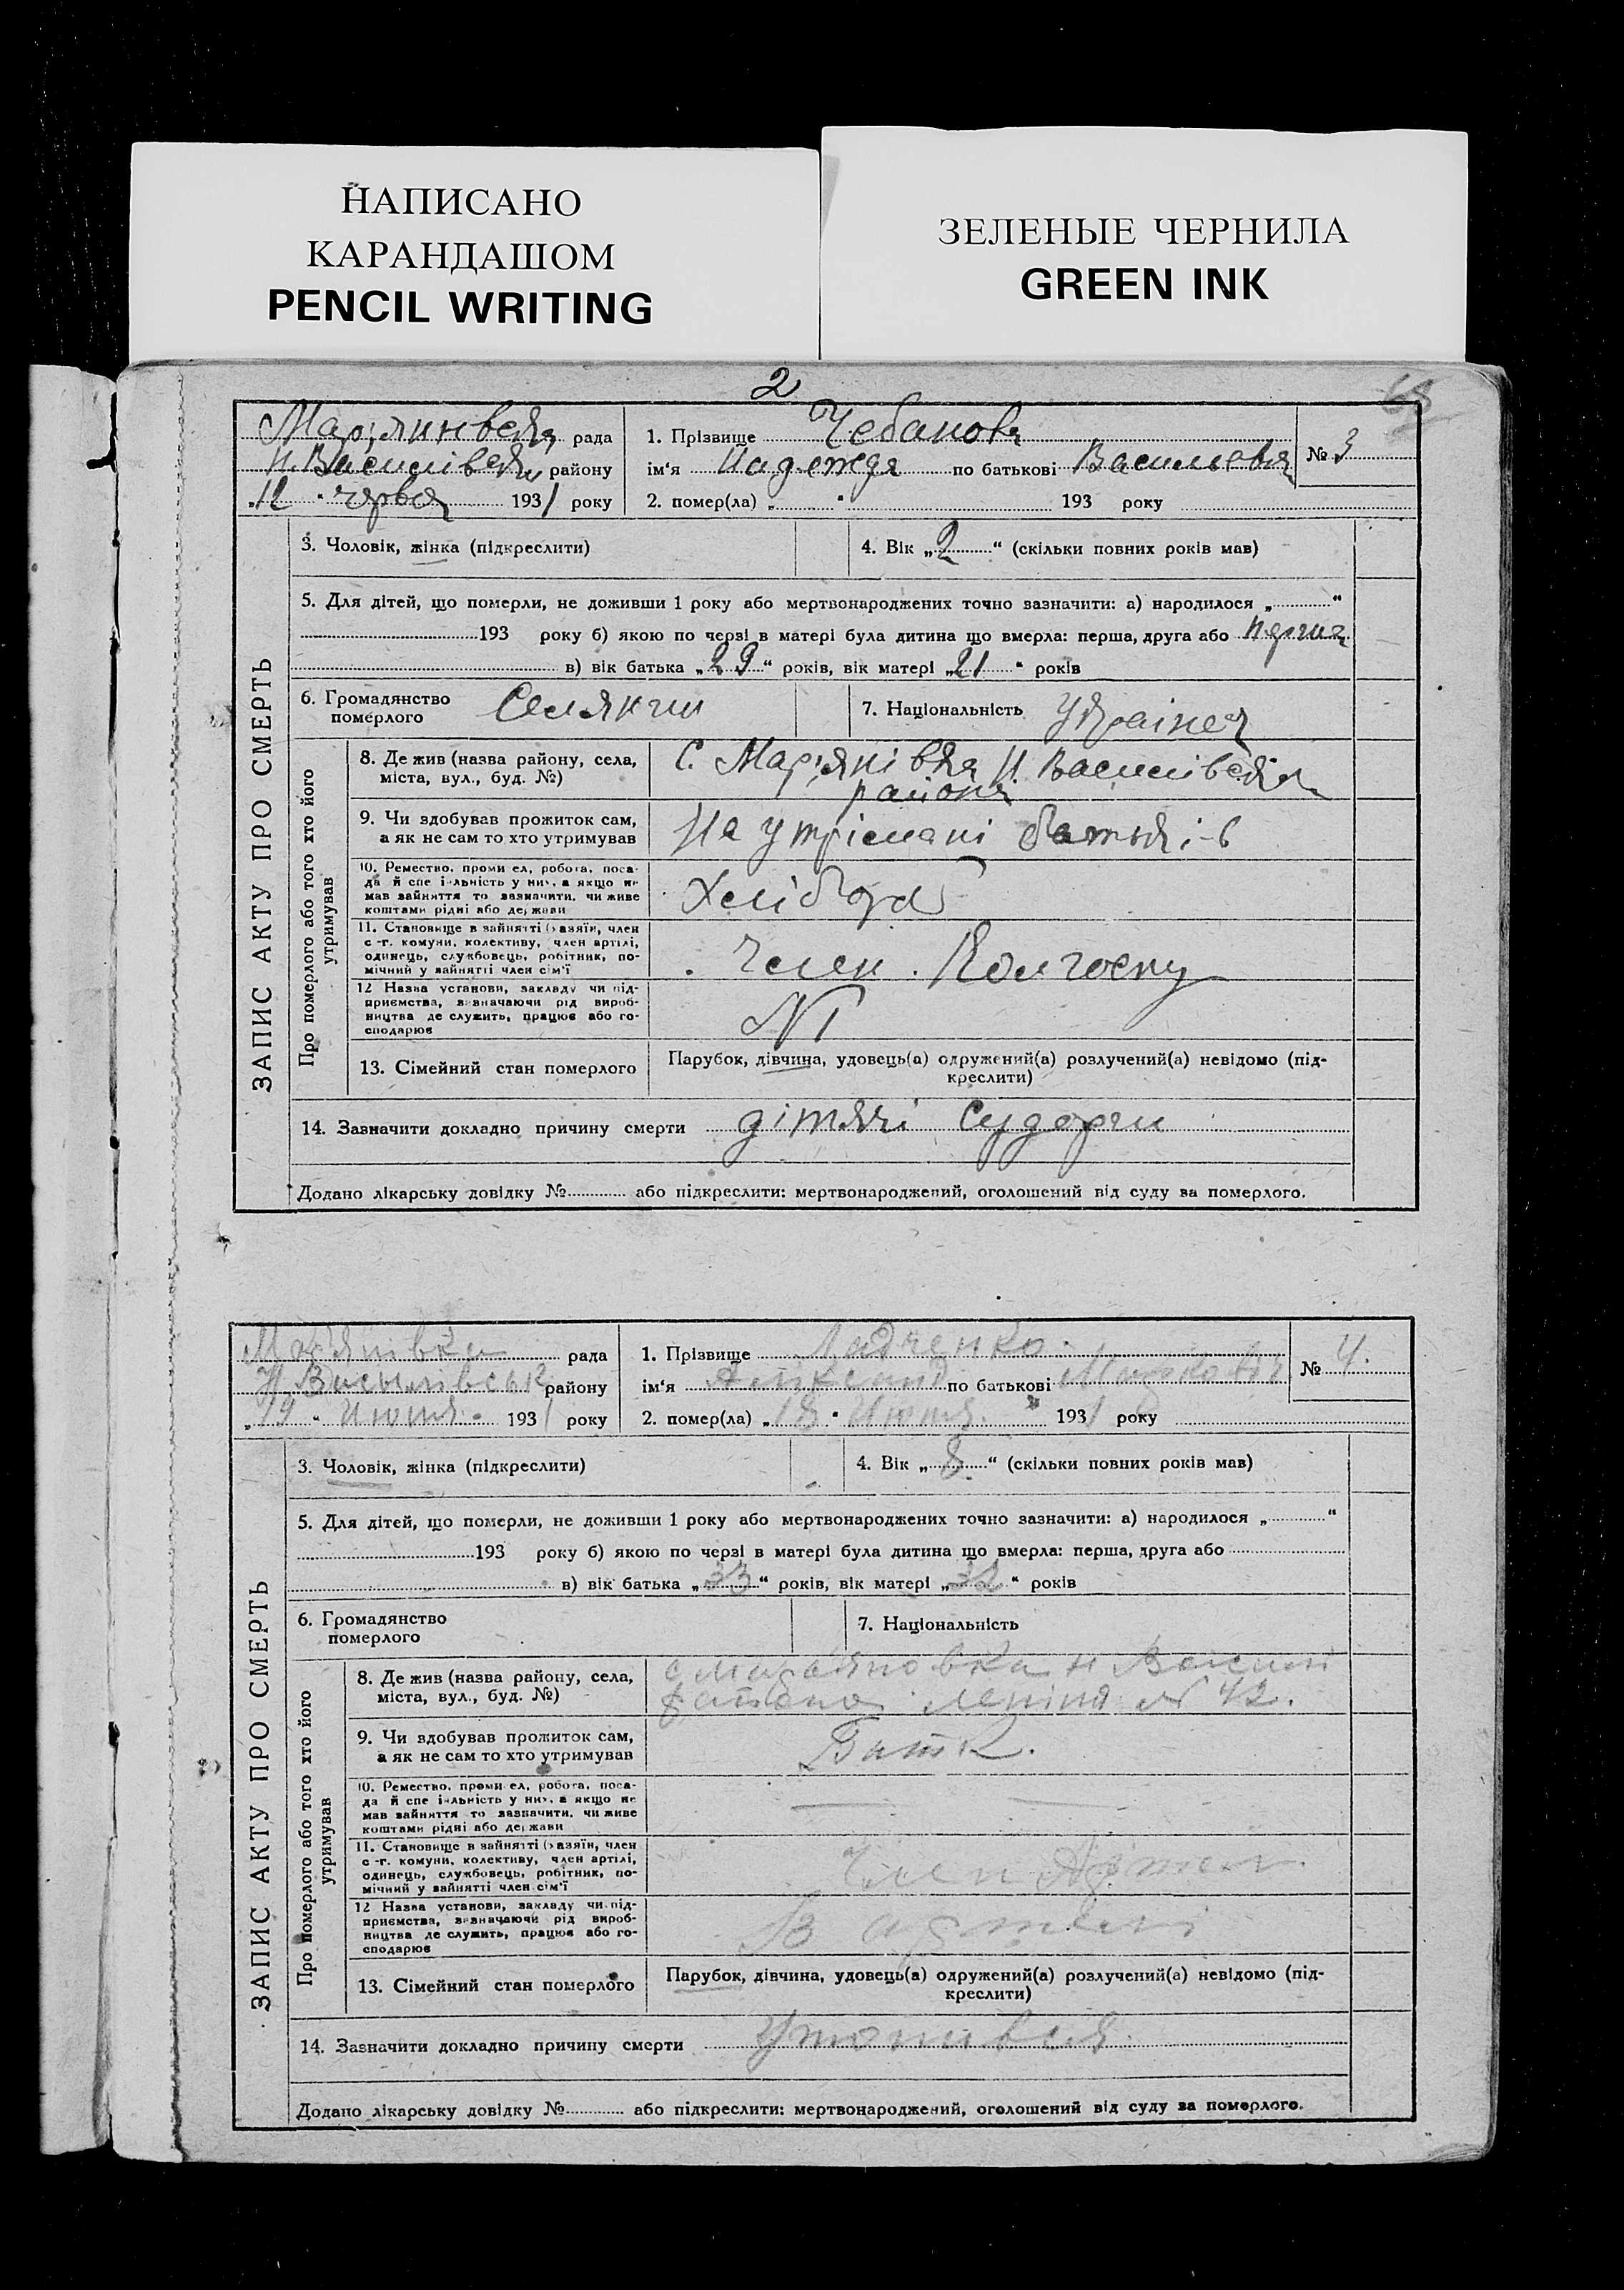 НАПИСАНО
КАРАНДАШОМ
PENCIL WRITING
ЗЕЛЕНЫЕ ЧЕРНИЛА
GREEN INK
2
68
рада
району
„12" червня 1931 року
1. Прізвище Чебанова
ім'я Надежда по батькові Васильевна
№ 3
2. помер(ла) „ " 193 року
ЗАПИС АКТУ ПРО СМЕРТЬ
3. Чоловік, жінка (підкреслити)
4. Вік „2" (скільки повних років мав)
5. Для дітей, що померли, не доживши 1 року або мертвонароджених точно зазначити: а) народилося „ "
193 року б) якою по черзі в матері була дитина що вмерла: перша, друга або перша
в) вік батька „29" років, вік матері „21" років
6. Громадянство померлого Селянин
7. Національність Україн
Про померлого або того хто його утримував
8. Де жив (назва району, села,
міста, вул., буд. №)
С. Мар'янівка Н. Василівська
района
9. Чи здобував прожиток сам,
а як не сам то хто утримував
На утрімані батьків
10. Ремество, проми ел, робота, поса-
да й спе і льність у них, а якщо не
мав зайняття то зазначити, чи живе
коштами рідні або держави
Хлібороб
11. Становище в зайнятті (хазяїн, член
с.-г. комуни, колективу, член артілі,
одинець, службовець, робітник, по-
мічний у зайнятті член сім'ї
Член Колгоспу
12 Назва установи, закладу чи під-
приємства, визначаючи рід вироб-
ництва де служить, працює або го-
сподарює
13. Сімейний стан померлого
Парубок, дівчина, удовець(а) одружений(а) розлучений(а) невідомо (під-
креслити)
14. Зазначити докладно причину смерти дітячі судорги
Додано лікарську довідку № або підкреслити: мертвонароджений, оголошений від суду за померлого.
Мар'янівка рада
Н Васылівськ району
„19" Июня 1931 року
1. Прізвище
ім'я по батькові
№ 4.
2. помер(ла) „18" Июня. 1931 року
ЗАПИС АКТУ ПРО СМЕРТЬ
3. Чоловік, жінка (підкреслити)
4. Вік „8" (скільки повних років мав)
5. Для дітей, що померли, не доживши 1 року або мертвонароджених точно зазначити: а) народилося „ "
193 року б) якою по черзі в матері була дитина що вмерла: перша, друга або
в) вік батька „33" років, вік матері „32" років
6. Громадянство померлого
7. Національність
Про померлого або того хто його утримував
8. Де жив (назва району, села,
міста, вул., буд. №)
с Марьяновка н Васили
№ 42.
9. Чи здобував прожиток сам,
а як не сам то хто утримував
Батк.
10. Ремество, проми ел, робота, поса-
да й спе і льність у них, а якщо не
мав зайняття то зазначити, чи живе
коштами рідні або держави
11. Становище в зайнятті (хазяїн, член
с.-г. комуни, колективу, член артілі,
одинець, службовець, робітник, по-
мічний у зайнятті член сім'ї
Член Артел
12 Назва установи, закладу чи під-
приємства, визначаючи рід вироб-
ництва де служить, працює або го-
сподарює
В артелі
13. Сімейний стан померлого
Парубок, дівчина, удовець(а) одружений(а) розлучений(а) невідомо (під-
креслити)
14. Зазначити докладно причину смерти Утопився
Додано лікарську довідку № або підкреслити: мертвонароджений, оголошений від суду за померлого.